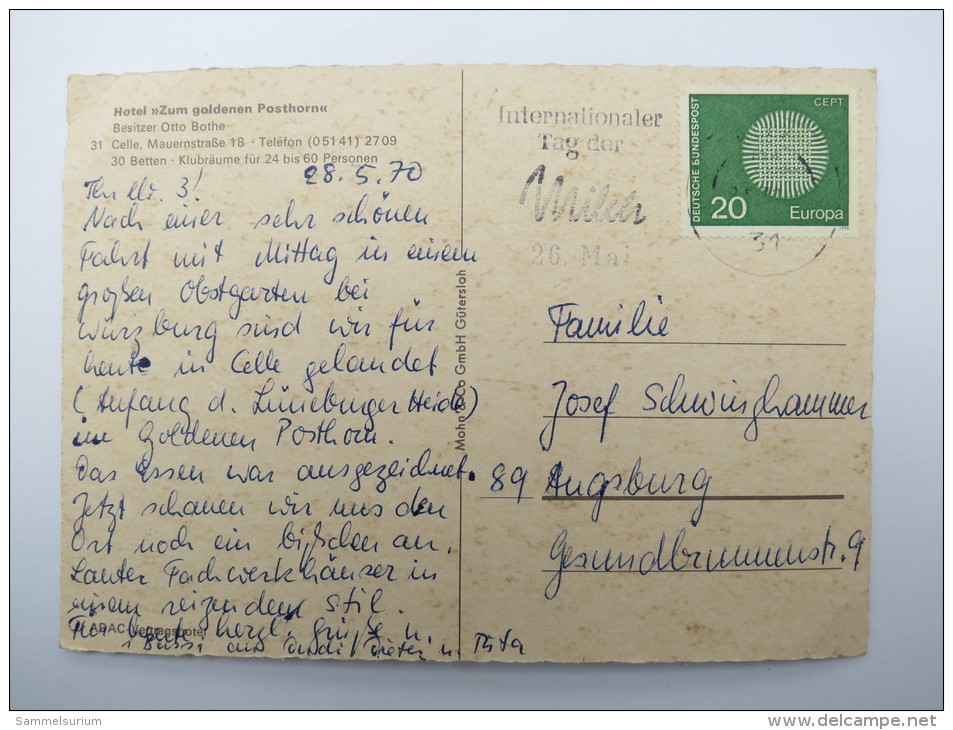 Hotel »Zum goldenen Posthorn«
Besitzer Otto Bothe
31 Celle, Mauernstraße 18 · Telefon (05141) 2709
30 Betten · Klubräume für 24 bis 60 Personen
28.5.70
Ihr 3!
Nach einer sehr schönen
Fahrt mit Mittag in einem
großen Obstgarten bei
Würzburg sind wir für
heute in Celle gelandet
(Anfang d. Lüneburger Heide)
im Goldenen Posthorn.
Das Essen war ausgezeichnet.
Jetzt schauen wir uns den
Ort noch ein bißchen an.
Lauter Fachwerkhäuser in
einem reizenden Stil.
Für heute herzl. Grüße u.
ADAC-Vertragshotel
1 Bussi an Dieter u. Rita
Mohn & Co GmbH Gütersloh
Internationaler
Tag der
Milch
26. Mai
DEUTSCHE BUNDESPOST
CEPT
20
Europa
31
Familie
Josef Schwinghammer
89 Augsburg
Gesundbrunnenstr. 9
Sammelsurium
delcampe.net